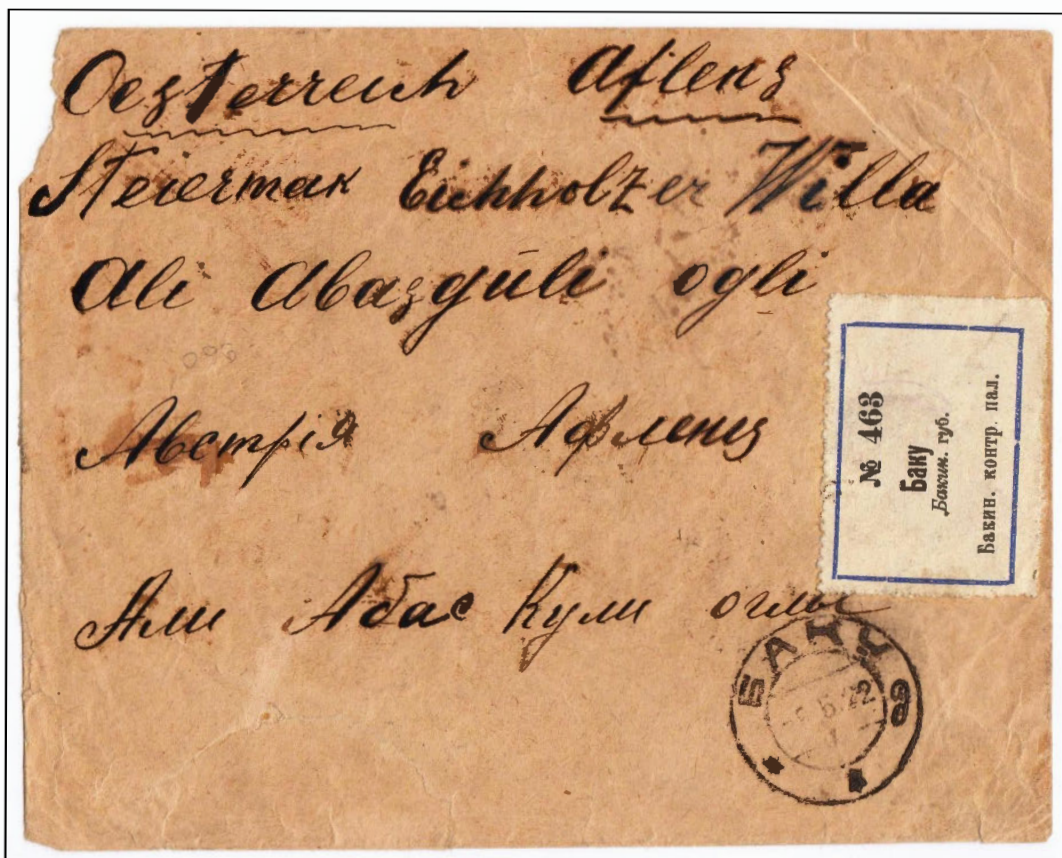 Oezterreich Aflenz
Steiermak Eichholzer Willa
Ali Abazgüli ogli
Австрія Афленц
Али Абас Кули оглы
№ 463
Баку
Бакин. губ.
Бакин. контр. пал.
БАКУ